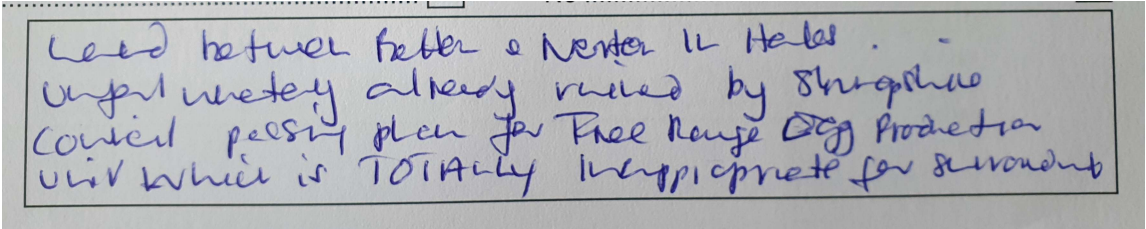 Land between Petton & Weston in Hales.
Unfortunately already ruined by Shropshire
Council passing plan for Free Range Egg Production
Unit which is TOTALLY Inappropriate for surrounds